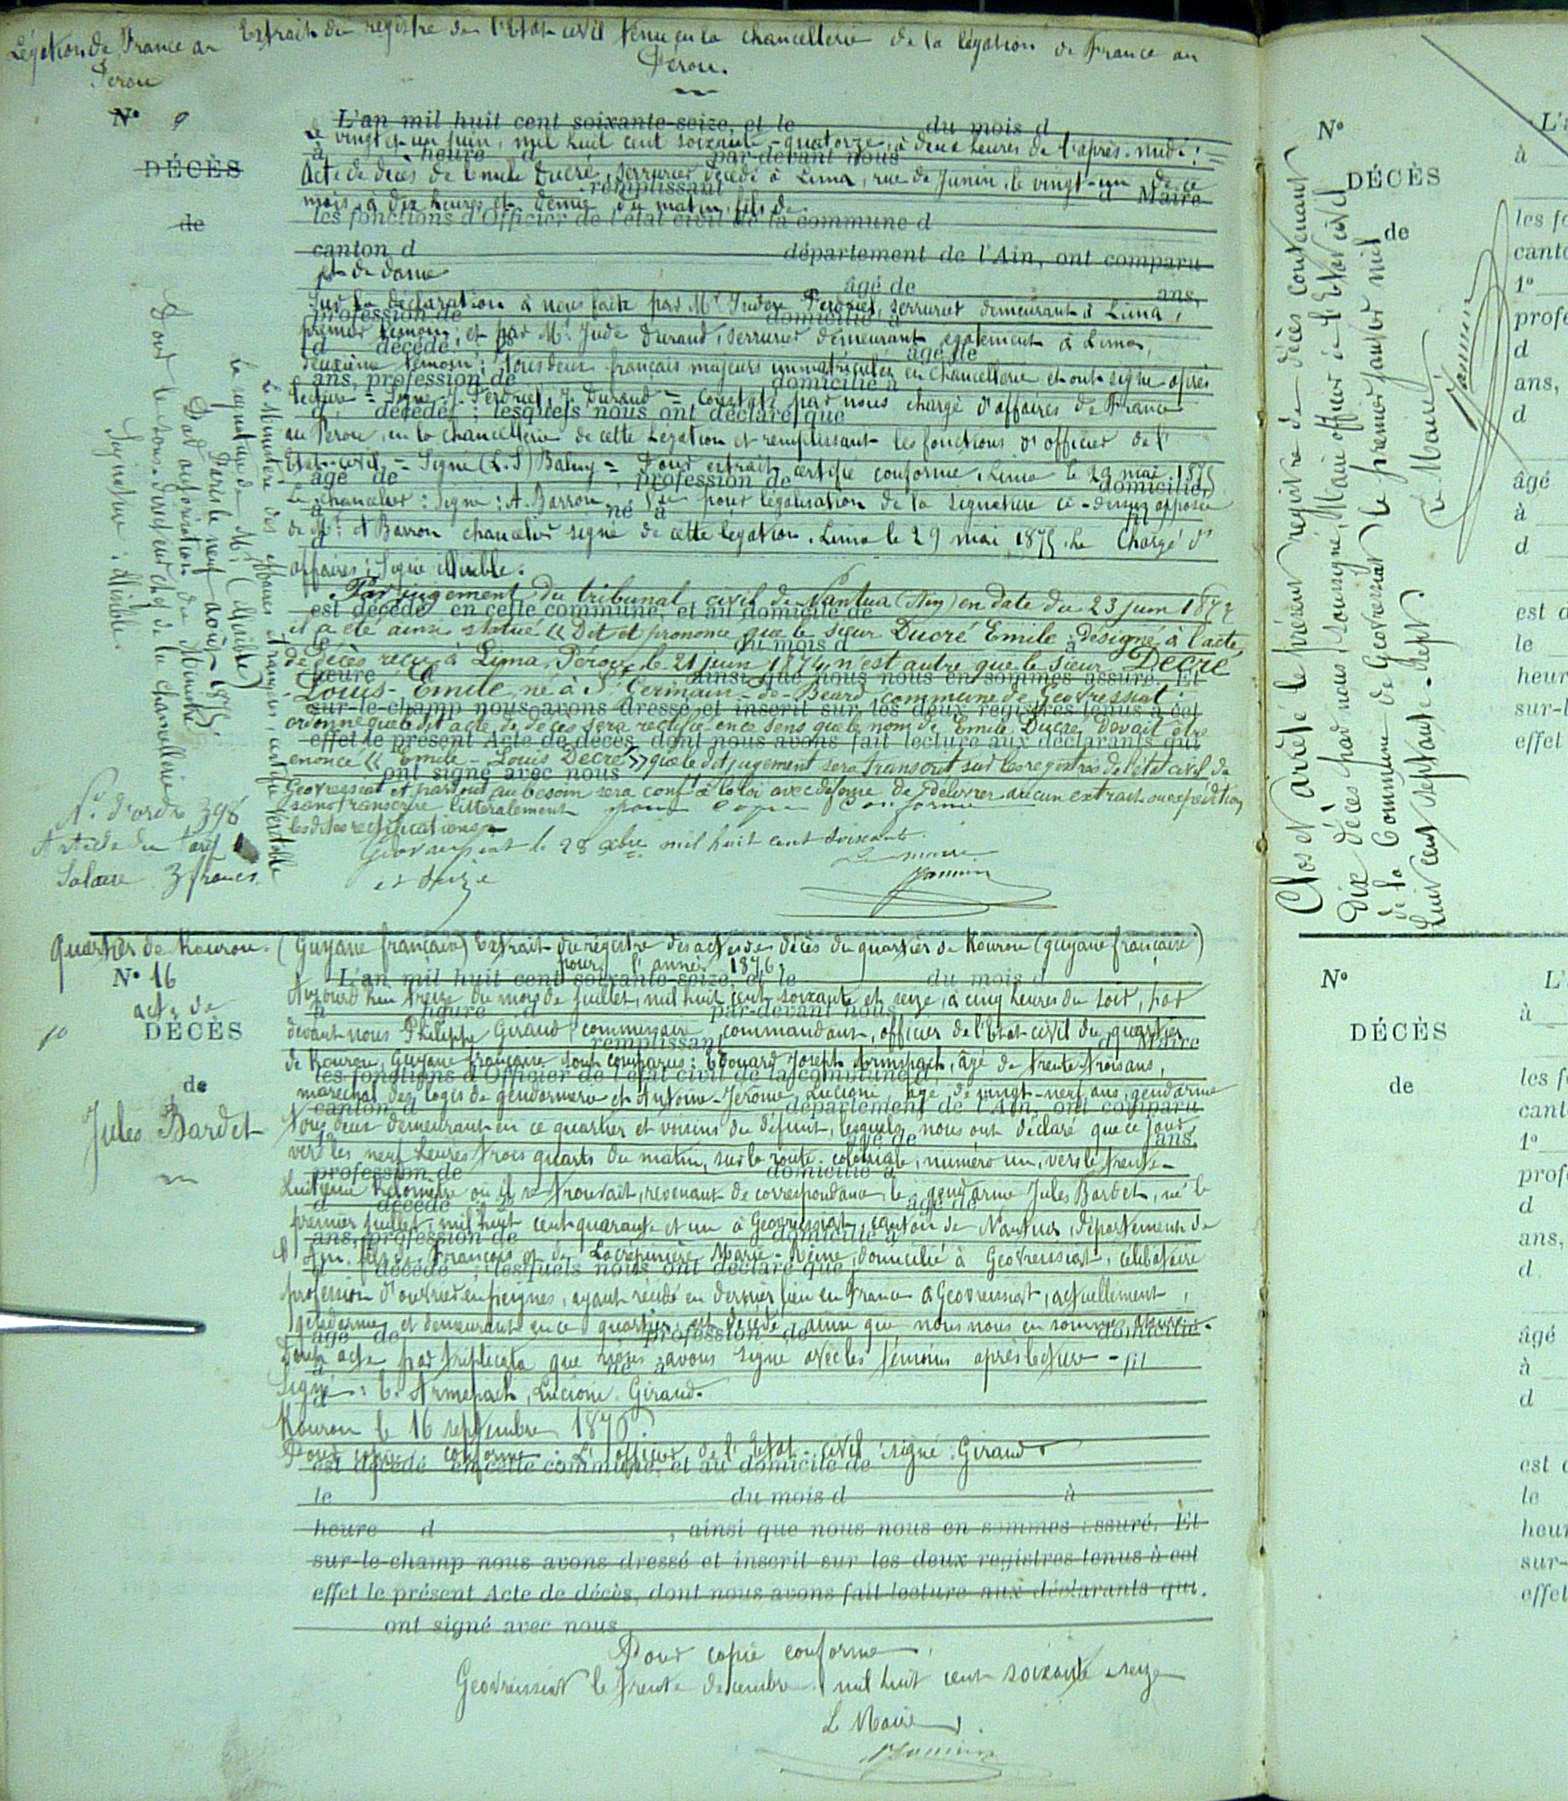 Légation de France au
Pérou
Extrait du registre de l'Etat civil tenu en la chancellerie de la légation de France au
Pérou.
N° 9
DÉCÈS
de
L'an mil huit cent soixante-seize, et le du mois d
Le vingt et un juin, mil huit cent soixante-quatorze, à deux heures de l'après-midi :
à heure d par-devant nous
Acte de décès de Emile Ducré, serrurier décédé à Lima, rue de Junin, le vingt-un de ce
remplissant d Maire
mois, à dix heures et demie du matin, fils de
les fonctions d'Officier de l'état civil de la commune d
canton d département de l'Ain, ont comparu
et de dame
âgé de ans,
Sur la déclaration à nous faite par Mr Isidore Perdriel, serrurier demeurant à Lima,
profession de domicilié à
premier témoin ; et par Mr Jude Durand, serrurier demeurant également à Lima,
d décédé ; 2° âgé de
deuxième témoin ; tous deux français majeurs immatriculés en chancellerie et ont signé après
ans, profession de domicilié à
lecture = Signé J. Perdriel, J. Durand = Constaté par nous chargé d'affaires de France
d décédé ; lesquels nous ont déclaré que
au Pérou, en la chancellerie de cette Légation et remplissant les fonctions d'officier de l'
Etat-civil = Signé (L.S) Balny = Pour extrait certifié conforme, Lima le 29 mai 1875
âgé de profession de domicilié
Le chancelier : Signé : A. Barron Vu pour légalisation de la signature ci-dessus apposée
à né à
de Mr A Barron chancelier signé de cette légation. Lima le 29 mai 1875. Le Chargé d'
affaires : Signé illisible.
Par jugement du tribunal civil de Nantua (Ain) en date du 23 juin 187
est décédé en cette commune, et au domicile de
il a été ainsi statué « Dit et prononce que le sieur Ducré Emile désigné à l'acte
le du mois d à
de décès reçu à Lima, Pérou, le 21 juin 1874 n'est autre que le sieur Decré
heure d ainsi que nous nous en sommes assuré. Et
Louis-Emile, né à St Germain-de-Béard, commune de Géovreissiat ;
sur-le-champ nous avons dressé et inscrit sur les deux registres tenus à cet
ordonne que le dit acte de décès sera rectifié en ce sens que le nom de Emile Ducré devait être
effet le présent Acte de décès, dont nous avons fait lecture aux déclarants qui
énoncé « Emile-Louis Decré » que le dit jugement sera transcrit sur les registres de l'état civil de
ont signé avec nous
Géovreissiat et partout au besoin sera conft à la loi avec défense de délivrer aucun extrait ou expédition
sans transcrire littéralement pour copie conforme
les dites rectifications
Géovreissiat le 28 xbre mil huit cent soixante
et seize
Le maire
Le Ministère des affaires étrangères, certifie véritable
la signature de Mr (illisible)
Paris le neuf août 1875.
Par autorisation du Ministre
Pour le sous-directeur chef de la chancellerie
Signature : illisible.
N° d'ordre 398
Article du tarif
Salaire 3 francs.
Quartier de Kourou. (Guyane française) Extrait du régistre des actes de décès du quartier de Kourou (guyane française)
pour l'année 1876,
N° 16
acte de
10
DÉCÈS
de
Jules Bardet
L'an mil huit cent soixante-seize, et le du mois d
Aujourd'hui treize du mois de juillet, mil huit cent soixante et seize, à cinq heures du soir, par
à heure d par-devant nous
devant nous Philippe Giraud commissaire commandant, officier de l'Etat civil du quartier
remplissant d Maire
de Kourou, Guyane française sont comparus : Edouard Joseph Armspach, âgé de trente trois ans,
les fonctions d'Officier de l'état civil de la commune d
maréchal des logis de gendarmerie et Antoine-Jérôme Lucioni, âgé de vingt-neuf ans, gendarme
canton d département de l'Ain, ont comparu
tous deux demeurant en ce quartier et voisins du défunt, lesquels nous ont déclaré que ce jour
1° âgé de ans,
vers les neuf heures trois quarts du matin, sur la route coloniale, numéro un, vers le trente-
profession de domicilié à
huitième kilomètre où il se trouvait, revenant de correspondance, le gendarme Jules Bardet, né le
d décédé ; 2° âgé de
premier juillet, mil huit cent quarante et un à Géovreissiat, canton de Nantua, département de
ans, profession de domicilié à
l'Ain, fils de François et de Lacrépinière Marie-Reine, domicilié à Géovreissiat, célibataire
d décédé ; lesquels nous ont déclaré que
profession d'ouvrier en peignes, ayant résidé en dernier lieu en France à Géovreissiat, actuellement
gendarme et demeurant en ce quartier, est décédé, ainsi que nous nous en sommes assuré.
âgé de profession de domicilié
Dont acte par triplicata que nous avons signé avec les témoins après lecture
à né à
Signé : E. Armspach, Lucioni, Giraud.
Kourou le 16 septembre 1876.
Pour copie conforme : L'officier de l'Etat-civil signé : Giraud
est décédé en cette commune, et au domicile de
le du mois d à
heure d , ainsi que nous nous en sommes assuré. Et
sur-le-champ nous avons dressé et inscrit sur les deux registres tenus à cet
effet le présent Acte de décès, dont nous avons fait lecture aux déclarants qui
ont signé avec nous
Pour copie conforme
Géovreissiat le trente décembre mil huit cent soixante et seize
Le Maire
N°
DÉCÈS
de
Clos et arrêté le présent registre de décès contenant
dix décès par nous soussigné, Maire officier de l'Etat civil
de la Commune de Géovreissiat le premier janvier mil
huit cent septante-sept
Le Maire
L'
à
les fo
canto
1°
profe
d
ans,
d
âgé
à
d
est d
le
heur
sur-l
effet
N°
DÉCÈS
de
L'
à
les f
cant
1°
prof
d
ans,
d
âgé
à
d
est d
le
heur
sur-
effet